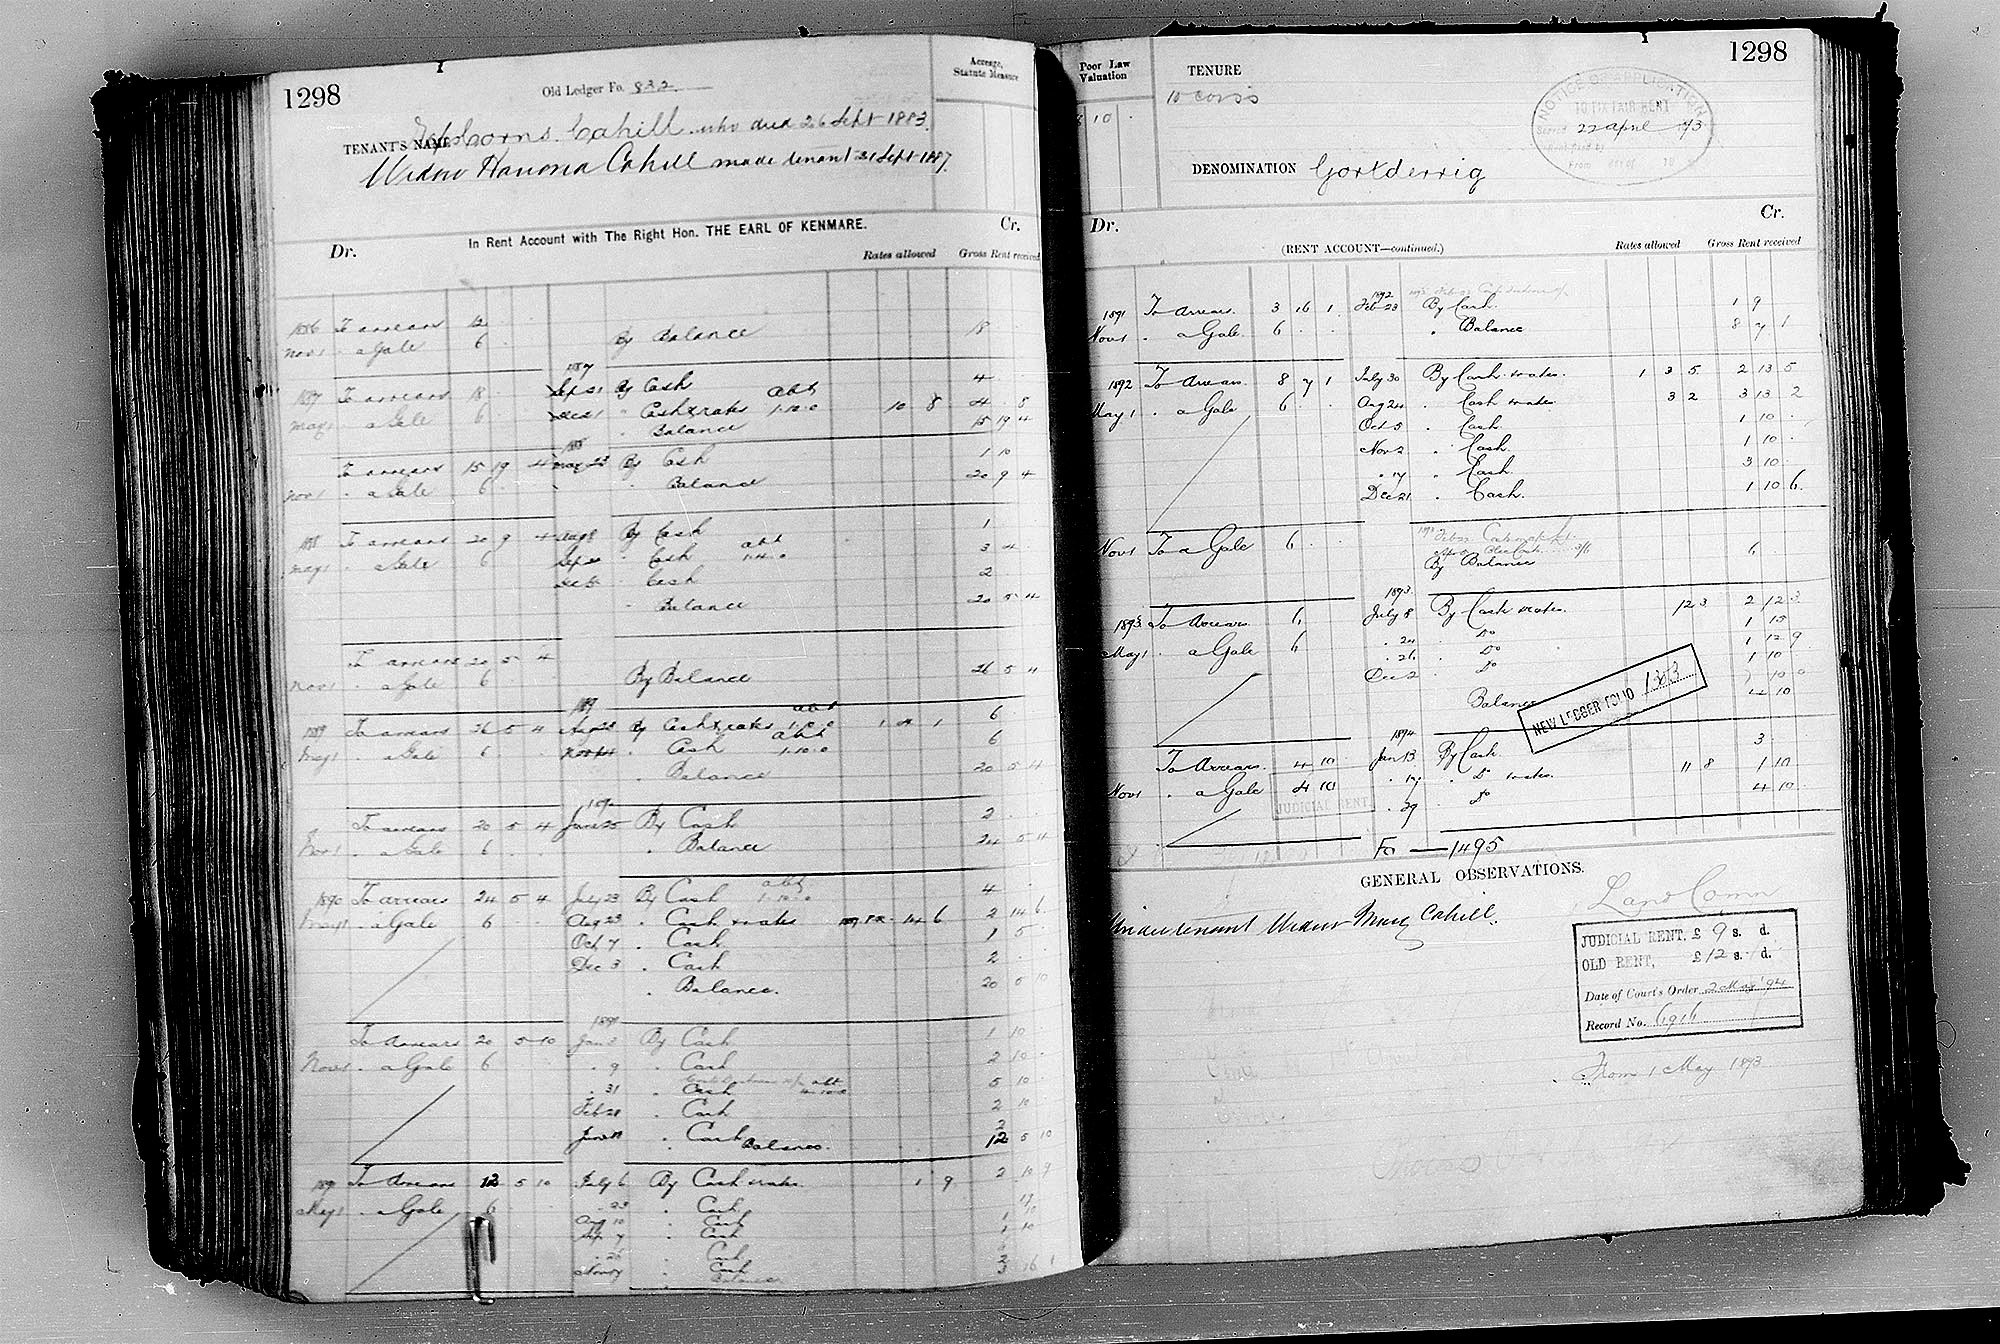 1298
Old Ledger Fo. 832
Acreage, Statute Measure
TENANT'S NAME Corns. Cahill who died 26 Sept 1883.
Widow Hanoria Cahill made tenant 21 Sept 1887.
In Rent Account with The Right Hon. THE EARL OF KENMARE.
Dr. Cr.
Rates allowed Gross Rent received
1886 To arrears 12
Nov 1 . a Gale 6 By Balance 18
1887
1887 To arrears 18 Sep 21 By Cash 4
May 1 a Gale 6 Dec 21 " Cash & rates abt 1.10.0 10 8 4 . 8
" Balance 15 19 4
188
To arrears 15 19 4 May 23 By Cash 1 10
Nov 1 . a Gale 6 " Balance 20 9 4
188 To arrears 20 9 4 Aug 8 By Cash 1
May 1 . a Gale 6 Sep " Cash abt 1.4.0 3 4
Dec " Cash 2
" Balance 20 5 4
To arrears 20 5 4
Nov 1 . a Gale 6 By Balance 26 5 4
1889
1889 To arrears 26 5 4 Aug 28 By Cash & rates abt 1.0.0 1 1 6
May 1 . a Gale 6 Nov " Cash abt 1.10.0 6
" Balance 20 5 4
189
To arrears 20 5 4 Jan 25 By Cash 2
Nov 1 . a Gale 6 . Balance 24 5 4
1890 To arrears 24 5 4 July 23 By Cash abt 1.10.0 4
May 1 . a Gale 6 Aug 23 . Cash & rates 14 6 2 14 6
Oct 7 . Cash 1 5
Dec 3 . Cash 2
. Balance. 20 5 10
1891
To Arrears 20 5 10 Jan 3 By Cash 1 10
Nov 1 . a Gale 6 . 9 . Cash 2 10
. 31 . Cash abt 5 10
Feb 28 . Cash 2 10
June . Cash 2
Balance. 12 5 10
1891 To Arrears 12 5 10 July 6 By Cash & rates. 1 9 2 10 9
May 1 . a Gale 6 . 23 . Cash 17
Aug 10 . Cash 1 10
Sep 7 . Cash 1 10
. 26 . Cash
Nov . Cash
Balance 3 16 1
1298
Poor Law Valuation
10
TENURE
10 cows
NOTICE OF APPLICATION
TO FIX FAIR RENT
Served 22 April 93
From
DENOMINATION Gortderrig
Dr. Cr.
(RENT ACCOUNT—continued.)
Rates allowed Gross Rent received
1892
1891 To Arrears. 3 16 1 Feb 23 By Cash. 1 9
Nov 1 . a Gale. 6 . . " Balance 8 7 1
1892 To Arrears. 8 7 1 July 30 By Cash & rates. 1 3 5 2 13 5
May 1 . a Gale 6 . . Aug 24 " Cash & rates 3 2 3 13 2
Oct 5 . Cash 1 10
Nov 2 . Cash. 1 10
. 17 . Cash 3 10
Dec 21 . Cash. 1 10 6
Nov 1 To a Gale 6
By Balance 6
1893.
1893 To Arrears 6 July 8 By Cash & rates. 12 3 2 12 3
May 1 . a Gale 6 . 24 . Do 1 15
. 26 . Do 1 12 9
Dec 2 . Do 1 10
Balance 4 10
NEW LEDGER FOLIO
1894
To Arrears. 4 10 Jan 13 By Cash 3
Nov 1 . a Gale 4 10 . 19 . Do & rates. 11 8 1 10
JUDICIAL RENT . 29 . Do 4 10
Fo — 1495
GENERAL OBSERVATIONS.
Undertenant Widow Mary Cahill.
Land Comn
JUDICIAL RENT, £ 9 s. d.
OLD RENT, £ 12 s. d.
Date of Court's Order 2 May '94
Record No. 6916
From 1 May 1893